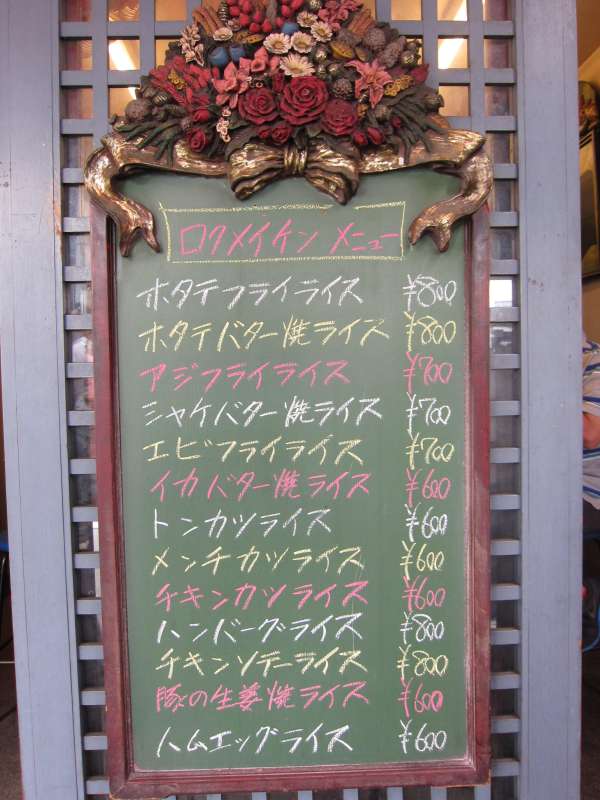 ロクメイケン メニュー
ホタテフライライス ¥800
ホタテバター焼ライス ¥800
アジフライライス ¥700
シャケバター焼ライス ¥700
エビフライライス ¥700
イカバター焼ライス ¥600
トンカツライス ¥600
メンチカツライス ¥600
チキンカツライス ¥600
ハンバーグライス ¥800
チキンソテーライス ¥800
豚の生姜焼ライス ¥600
ハムエッグライス ¥600